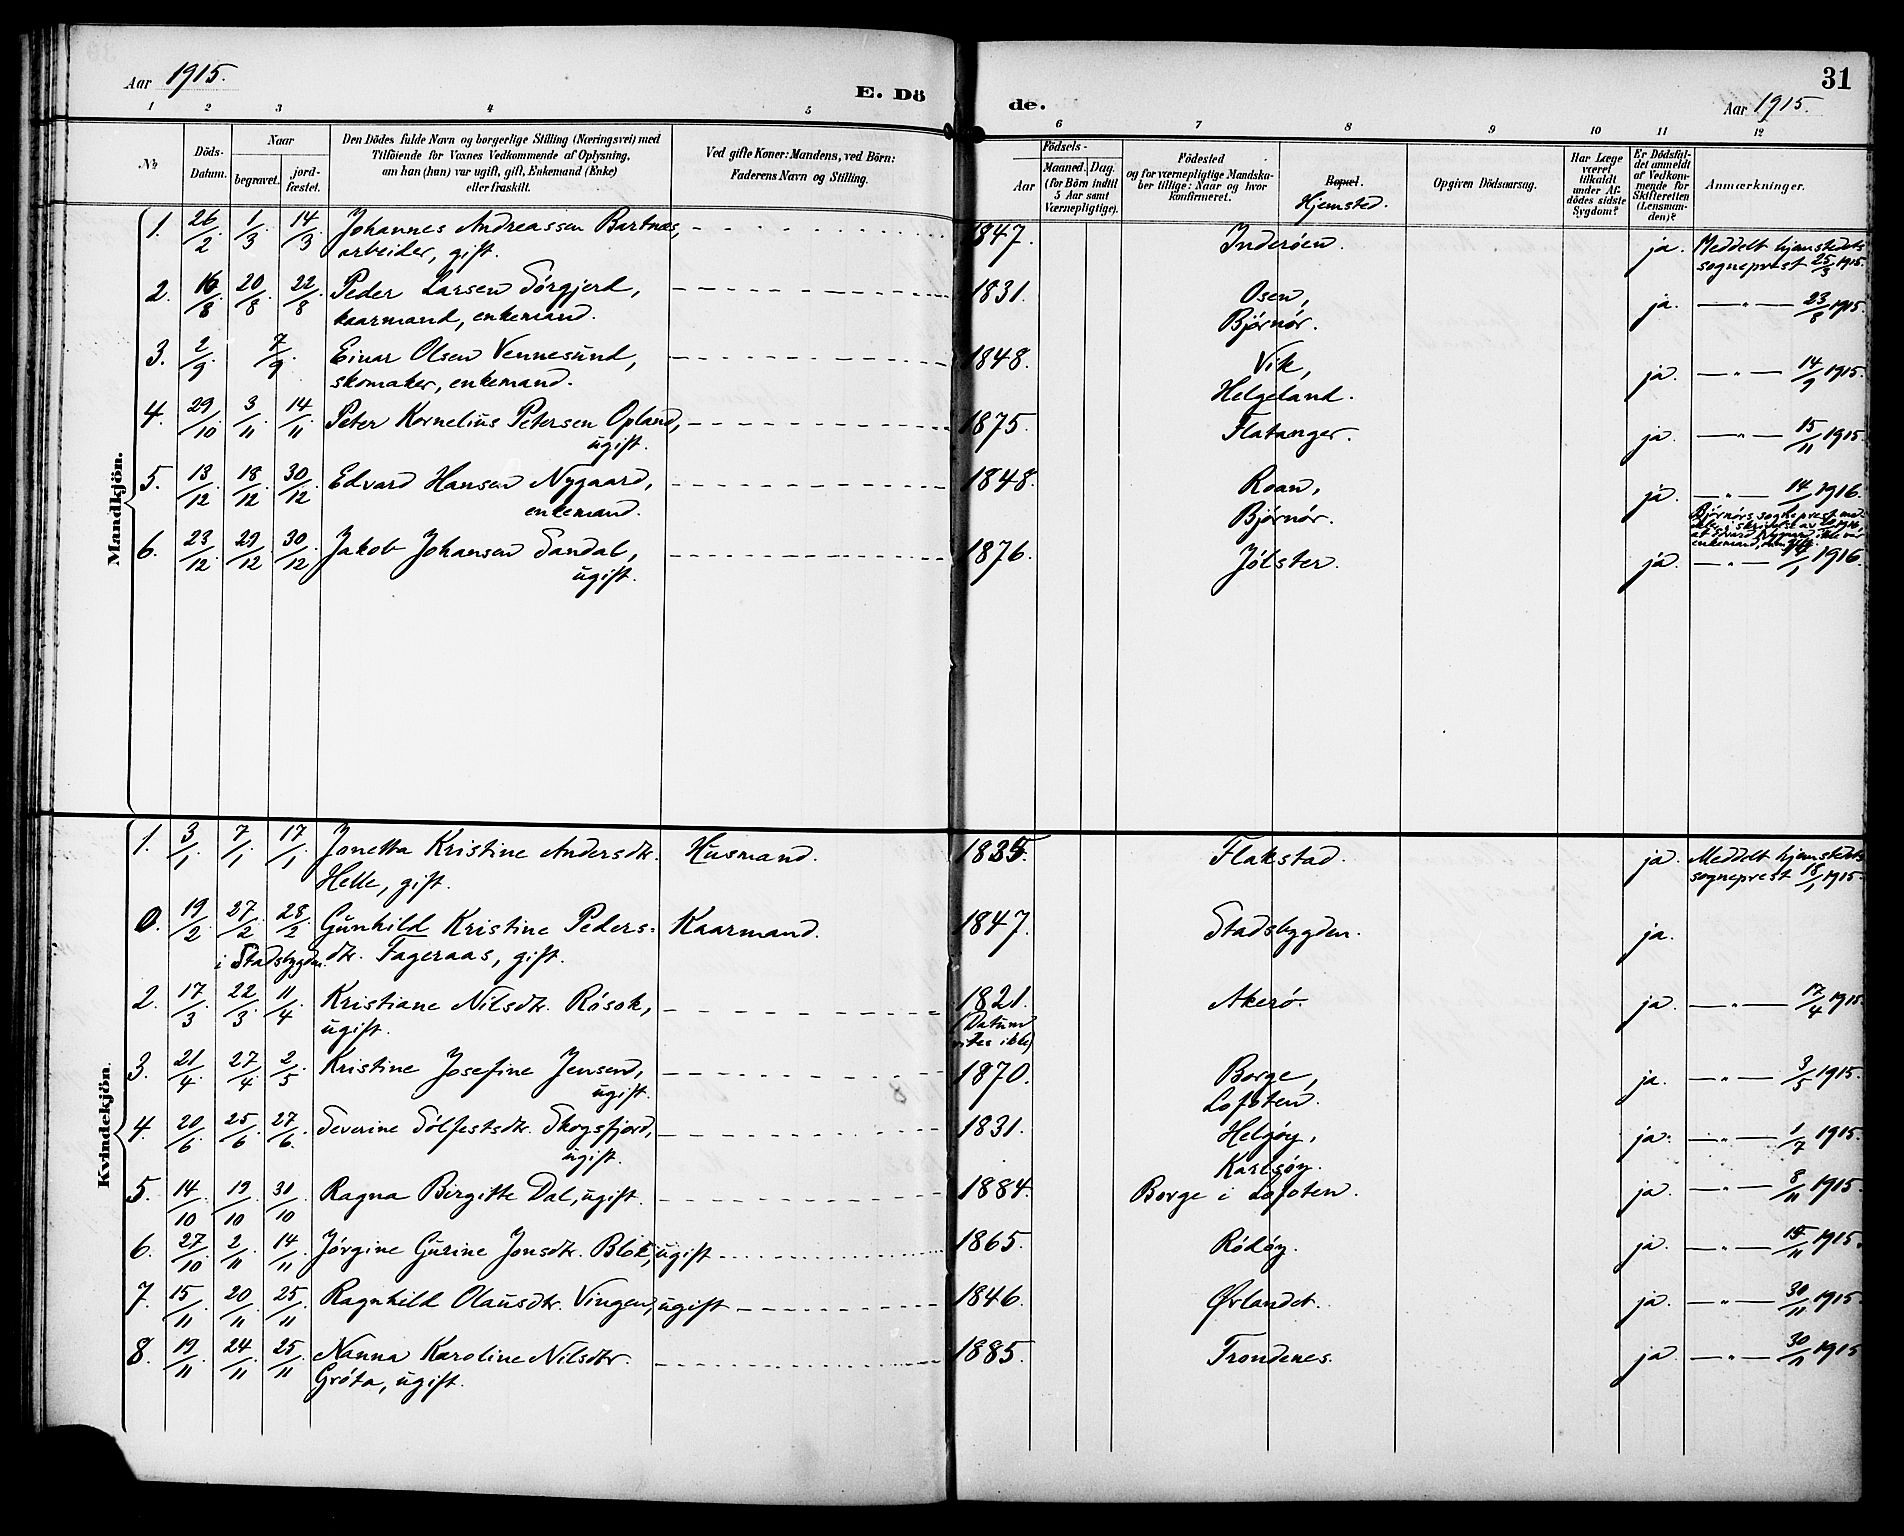 Aar 1915.
E. Dö
de.
31
Aar 1915.
1 2 3 4 5 6 7 8 9 10 11 12
No
Döds-Datum.
Naar
begravet.
jord-fæstet.
Den Dödes fulde Navn og borgerlige Stilling (Næringsvei) med
Tilföiende for Voxnes Vedkommende af Oplysning,
om han (hun) var ugift, gift, Enkemand (Enke)
eller fraskilt.
Ved gifte Koner: Mandens, ved Börn:
Faderens Navn og Stilling.
Födsels-
Aar
Maaned. Dag.
(for Börn indtil
5 Aar samt
Værnepligtige).
Födested
og for værnepligtige Mandska-
ber tillige: Naar og hvor
konfirmeret.
Bopæl.
Hjemsted.
Opgiven Dödsaarsag.
Har Læge
været
tilkaldt
under Af-
dödes sidste
Sygdom?
Er Dödsfal-
det anmeldt
af Vedkom-
mende for
Skifteretten
(Lensman-
den)?
Anmærkninger.
Mandkjön.
1. 26/2. 1/3 14/3 Johannes Andreassen Bartnes, 1847. Inderöen. ja. Meddelt hjemstedets
arbeider, gift. sogneprest 25/3 1915.
2. 16/8. 20/8 22/8 Peder Larsen Sörgjerd, 1831. Osen, ja. — " — 23/8 1915.
kaarmand, enkemand. Björnör.
3. 2/9 7/9. Einar Olsen Vennesund, 1848. Vik, ja. — " — 14/9 1915.
skomaker, enkemand. Helgeland.
4. 29/10 3/11 14/11 Peter Kornelius Petersen Opland, 1875. Flatanger. ja. — " — 15/11 1915.
ugift.
5. 13/12 18/12 30/12 Edvard Hansen Nygaard, 1848. Roan, ja. — " — 14/1 1916.
enkemand. Björnör. Björnörs sogneprest med-
at Edvard Nygaard ikke var
enkemand,
6. 23/12 29/12 30/12 Jakob Johansen Sandal, 1876. Jölster. ja. — " — 14/1 1916.
ugift.
Kvindekjön.
1. 3/1. 7/1. 17/1 Jonetta Kristine Andersdtr. Husmand. 1835. Flakstad. ja. Meddelt hjemstedets
Helle, gift. sogneprest 18/1 1915.
0. 19/2 27/2 28/2 Gunhild Kristine Peders- Kaarmand. 1847. Stadsbygden. ja.
i Stadsbygden. dtr. Fageraas, gift.
2. 17/3. 22/3. 11/4 Kristiane Nilsdtr. Rösok, 1821. Akerö. ja. — " — 17/4 1915.
ugift. (Datum
vites ikke)
3. 21/4. 27/4 2/5 Kristine Josefine Jensen, 1870. Borge, ja. — " — 3/5 1915.
ugift. Lofoten.
4. 20/6 25/6 27/6. Severine Sölfestsdtr. Skogsfjord, 1831. Helgöy, ja. — " — 1/7 1915.
ugift. Karlsöy.
5. 14/10 19/10 31/10 Ragna Birgitte Dal, ugift. 1884. Borge i Lofoten. ja. — " — 8/11 1915.
6. 27/10 2/11 14/11 Jörgine Gurine Jonsdtr. Blok, ugift 1865. Rödöy. ja. — " — 15/11 1915.
7. 15/11 20/11 25/11 Ragnhild Olausdtr. Vingen, ugift 1846. Ørlandet. ja. — " — 30/11 1915.
8. 19/11 24/11 25/11 Nanna Karoline Nilsdtr. 1885. Trondenes. ja — " — 30/11 1915
Gröta, ugift.